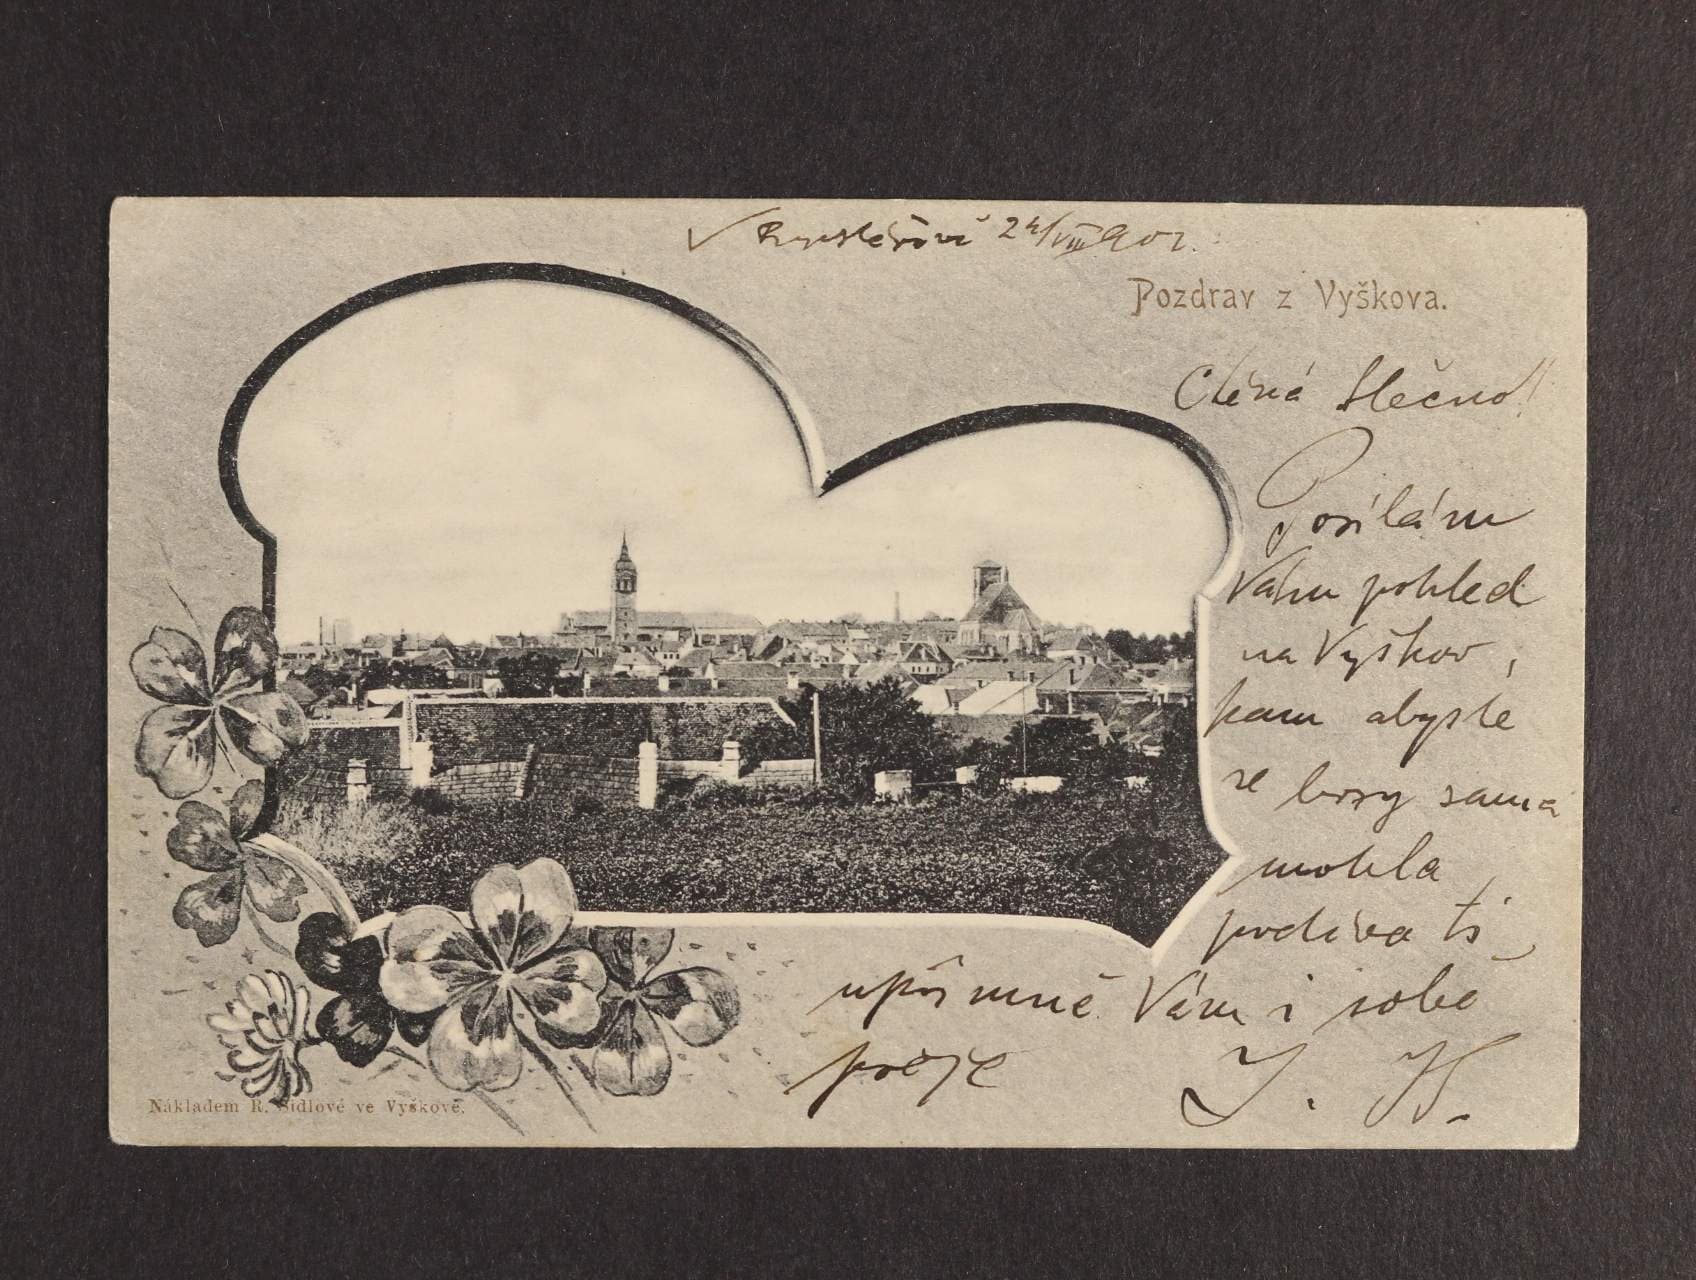 V 24/VIII 901.
Pozdrav z Vyškova.
Ctěná Slečno!
Posílám
Vám pohled
na Vyškov,
kam abyste
se brzy sama
mohla
podívati,
upřímně Vám i sobě
přeje J. K.
Nákladem R. Sidlové ve Vyškově.